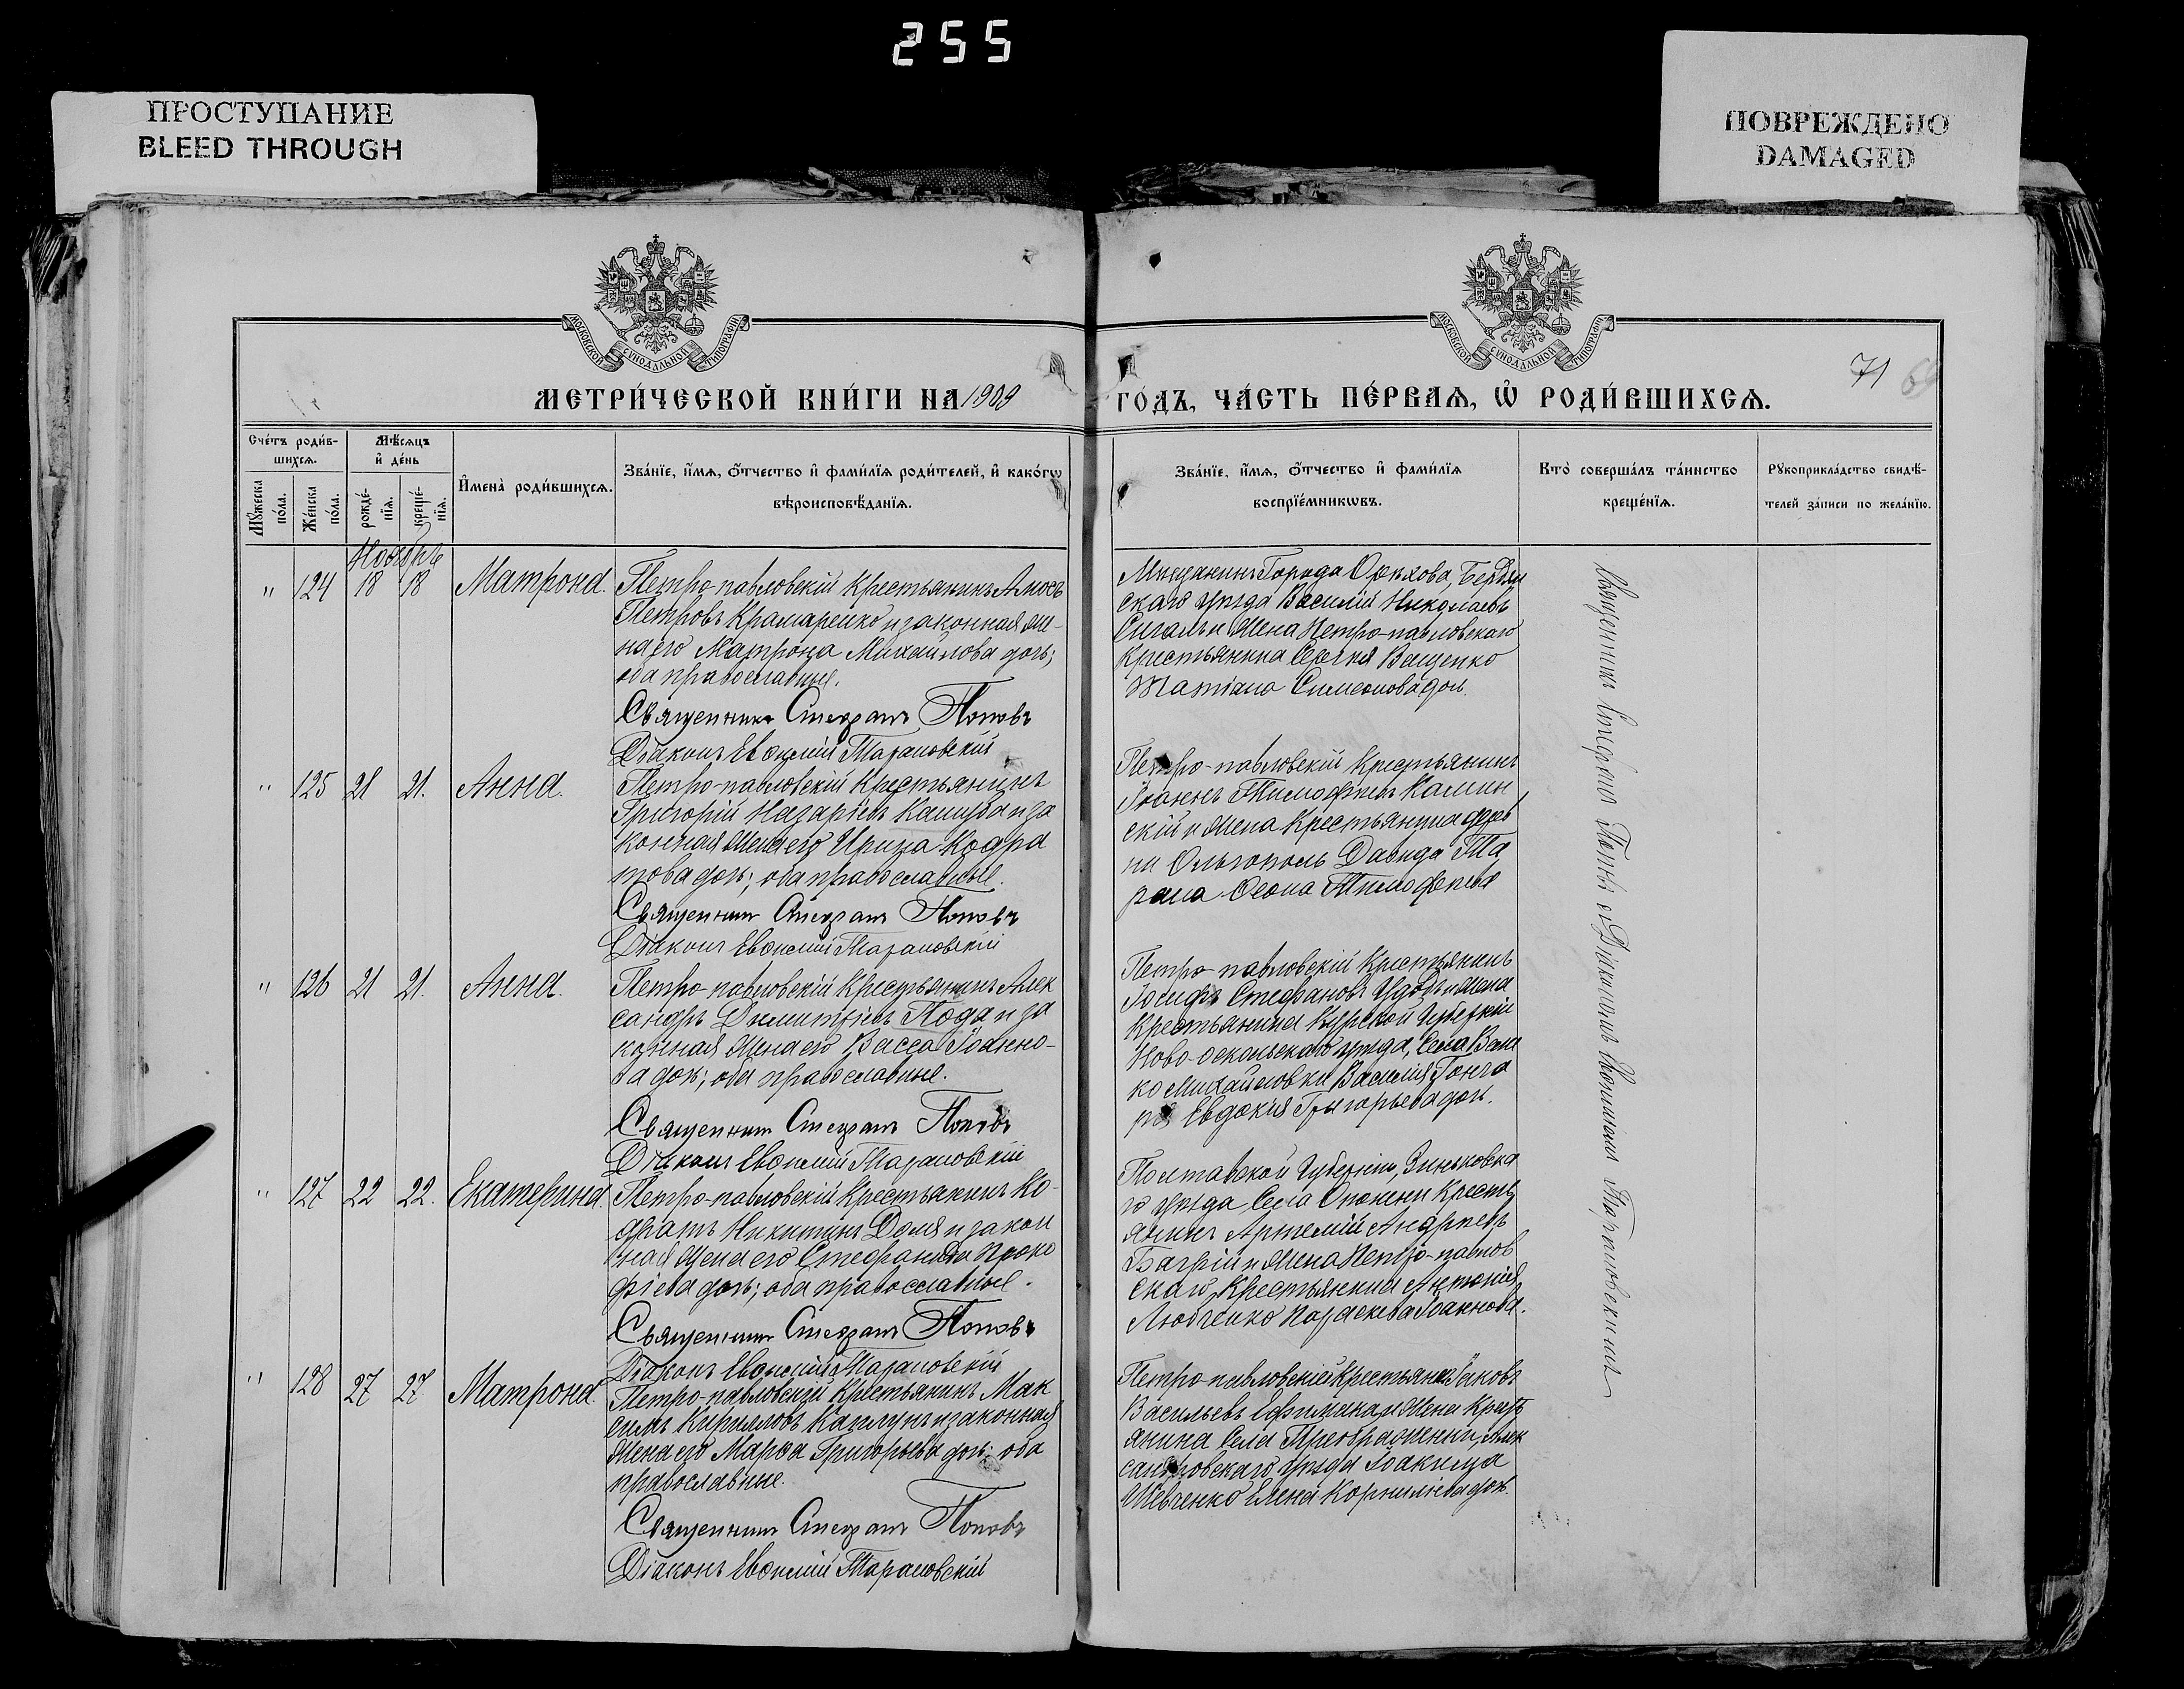 255
ПРОСТУПАНИЕ
BLEED THROUGH
ПОВРЕЖДЕНО
DAMAGED
МОСКОВСКОЙ СѴНОДАЛЬНОЙ ТИПОГРАФІИ
МОСКОВСКОЙ СѴНОДАЛЬНОЙ ТИПОГРАФІИ
71
МЕТРИ́ЧЕСКОЙ КНИ́ГИ НА 1909
ГО́ДЪ, ЧА́СТЬ ПЕ́РВАѦ, Ѽ РОДИ́ВШИХСѦ.
Сче́тъ роди́в-
шихсѧ.
Мѣ́сѧцъ
и҆ де́нь
Мꙋ́жеска
по́ла.
Же́нска
по́ла.
рожде́-
нїѧ.
креще́-
нїѧ.
И҆мена̀ роди́вшихсѧ.
Зва́нїе, и҆́мѧ, ѻ҆́тчество и҆ фами́лїѧ роди́телей, и҆ како́гѡ
вѣроисповѣ́данїѧ.
Зва́нїе, и҆́мѧ, ѻ҆́тчество и҆ фами́лїѧ
воспрїе́мникѡвъ.
Кто̀ соверша́лъ та́инство
креще́нїѧ.
Рꙋкоприкла́дство свидѣ́-
телей за́писи по жела́нїю.
Ноябрь
" 124 18 18 Матрона.
Петро-павловскій крестьянинъ Амосъ
Петровъ Крамаренко и законная же-
на его Матрона Михаилова дочь;
оба православные.
Священникъ Спиридонъ Поповъ
Діаконъ Евѳимій Тарановскій
Мѣщанинъ Города Орѣхова, Бердян
скаго уѣзда Василій Николаевъ
Сигалъ и жена Петро-павловскаго
крестьянина Сергія Ващенко
Татіана Симеонова доч.
" 125 21 21. Анна.
Петро-павловскій крестьянинъ
Григорій Назаріевъ Кашуба и за
конная жена его Ирина Кодра
това дочь; оба православные.
Священникъ Спиридонъ Поповъ
Діаконъ Евѳимій Тарановскій
Петро-павловскій крестьянинъ
Іоаннъ Тимофеевъ Камин
скій и жена крестьянина дерев
ни Ольгополь Давида Та
рана Ѳеона Тимофеева
" 126 21 21. Анна.
Петро-павловскій крестьянинъ Алек
сандръ Димитріевъ Пода и за
конная жена его Васса Іоанно-
ва дочь; оба православные.
Священникъ Спиридонъ Поповъ
Діаконъ Евѳимій Тарановскій
Петро-павловскій крестьянинъ
Іосифъ Стефановъ Удодъ и жена
крестьянина Курской Губерніи
Ново-оскольскаго уѣзда, Села Вели
ко Михайловки Василія Гонча
ра Евдокія Григорьева доч.
" 127 22 22. Екатерина.
Петро-павловскій крестьянинъ Ко-
дратъ Никитинъ Доля и закон
ная жена его Стефанида Проко
фіева дочь; оба православные.
Священникъ Спиридонъ Поповъ
Діаконъ Евѳимій Тарановскій
Полтавской Губерніи, Зиньковска
го уѣзда Села Опошни Кресть
янинъ Артемій Андреевъ
Багрій и жена Петро-павлов
скаго крестьянина Антонія
Любченко Параскева Іоаннова.
" 128 27 27 Матрона.
Петро-павловскій крестьянинъ Мак
симъ Кирилловъ Каплунъ и законная
жена его Марѳа Григорьева дочь; оба
православные.
Священникъ Спиридонъ Поповъ
Діаконъ Евѳимій Тарановскій
Петро-павловскій крестьянинъ Іаковъ
Васильевъ Ефименко и жена Кресть
янина Села Преображенки, Алек
сандровскаго уѣзда Іоакима
Шевченко Елена Корнилієва доч.